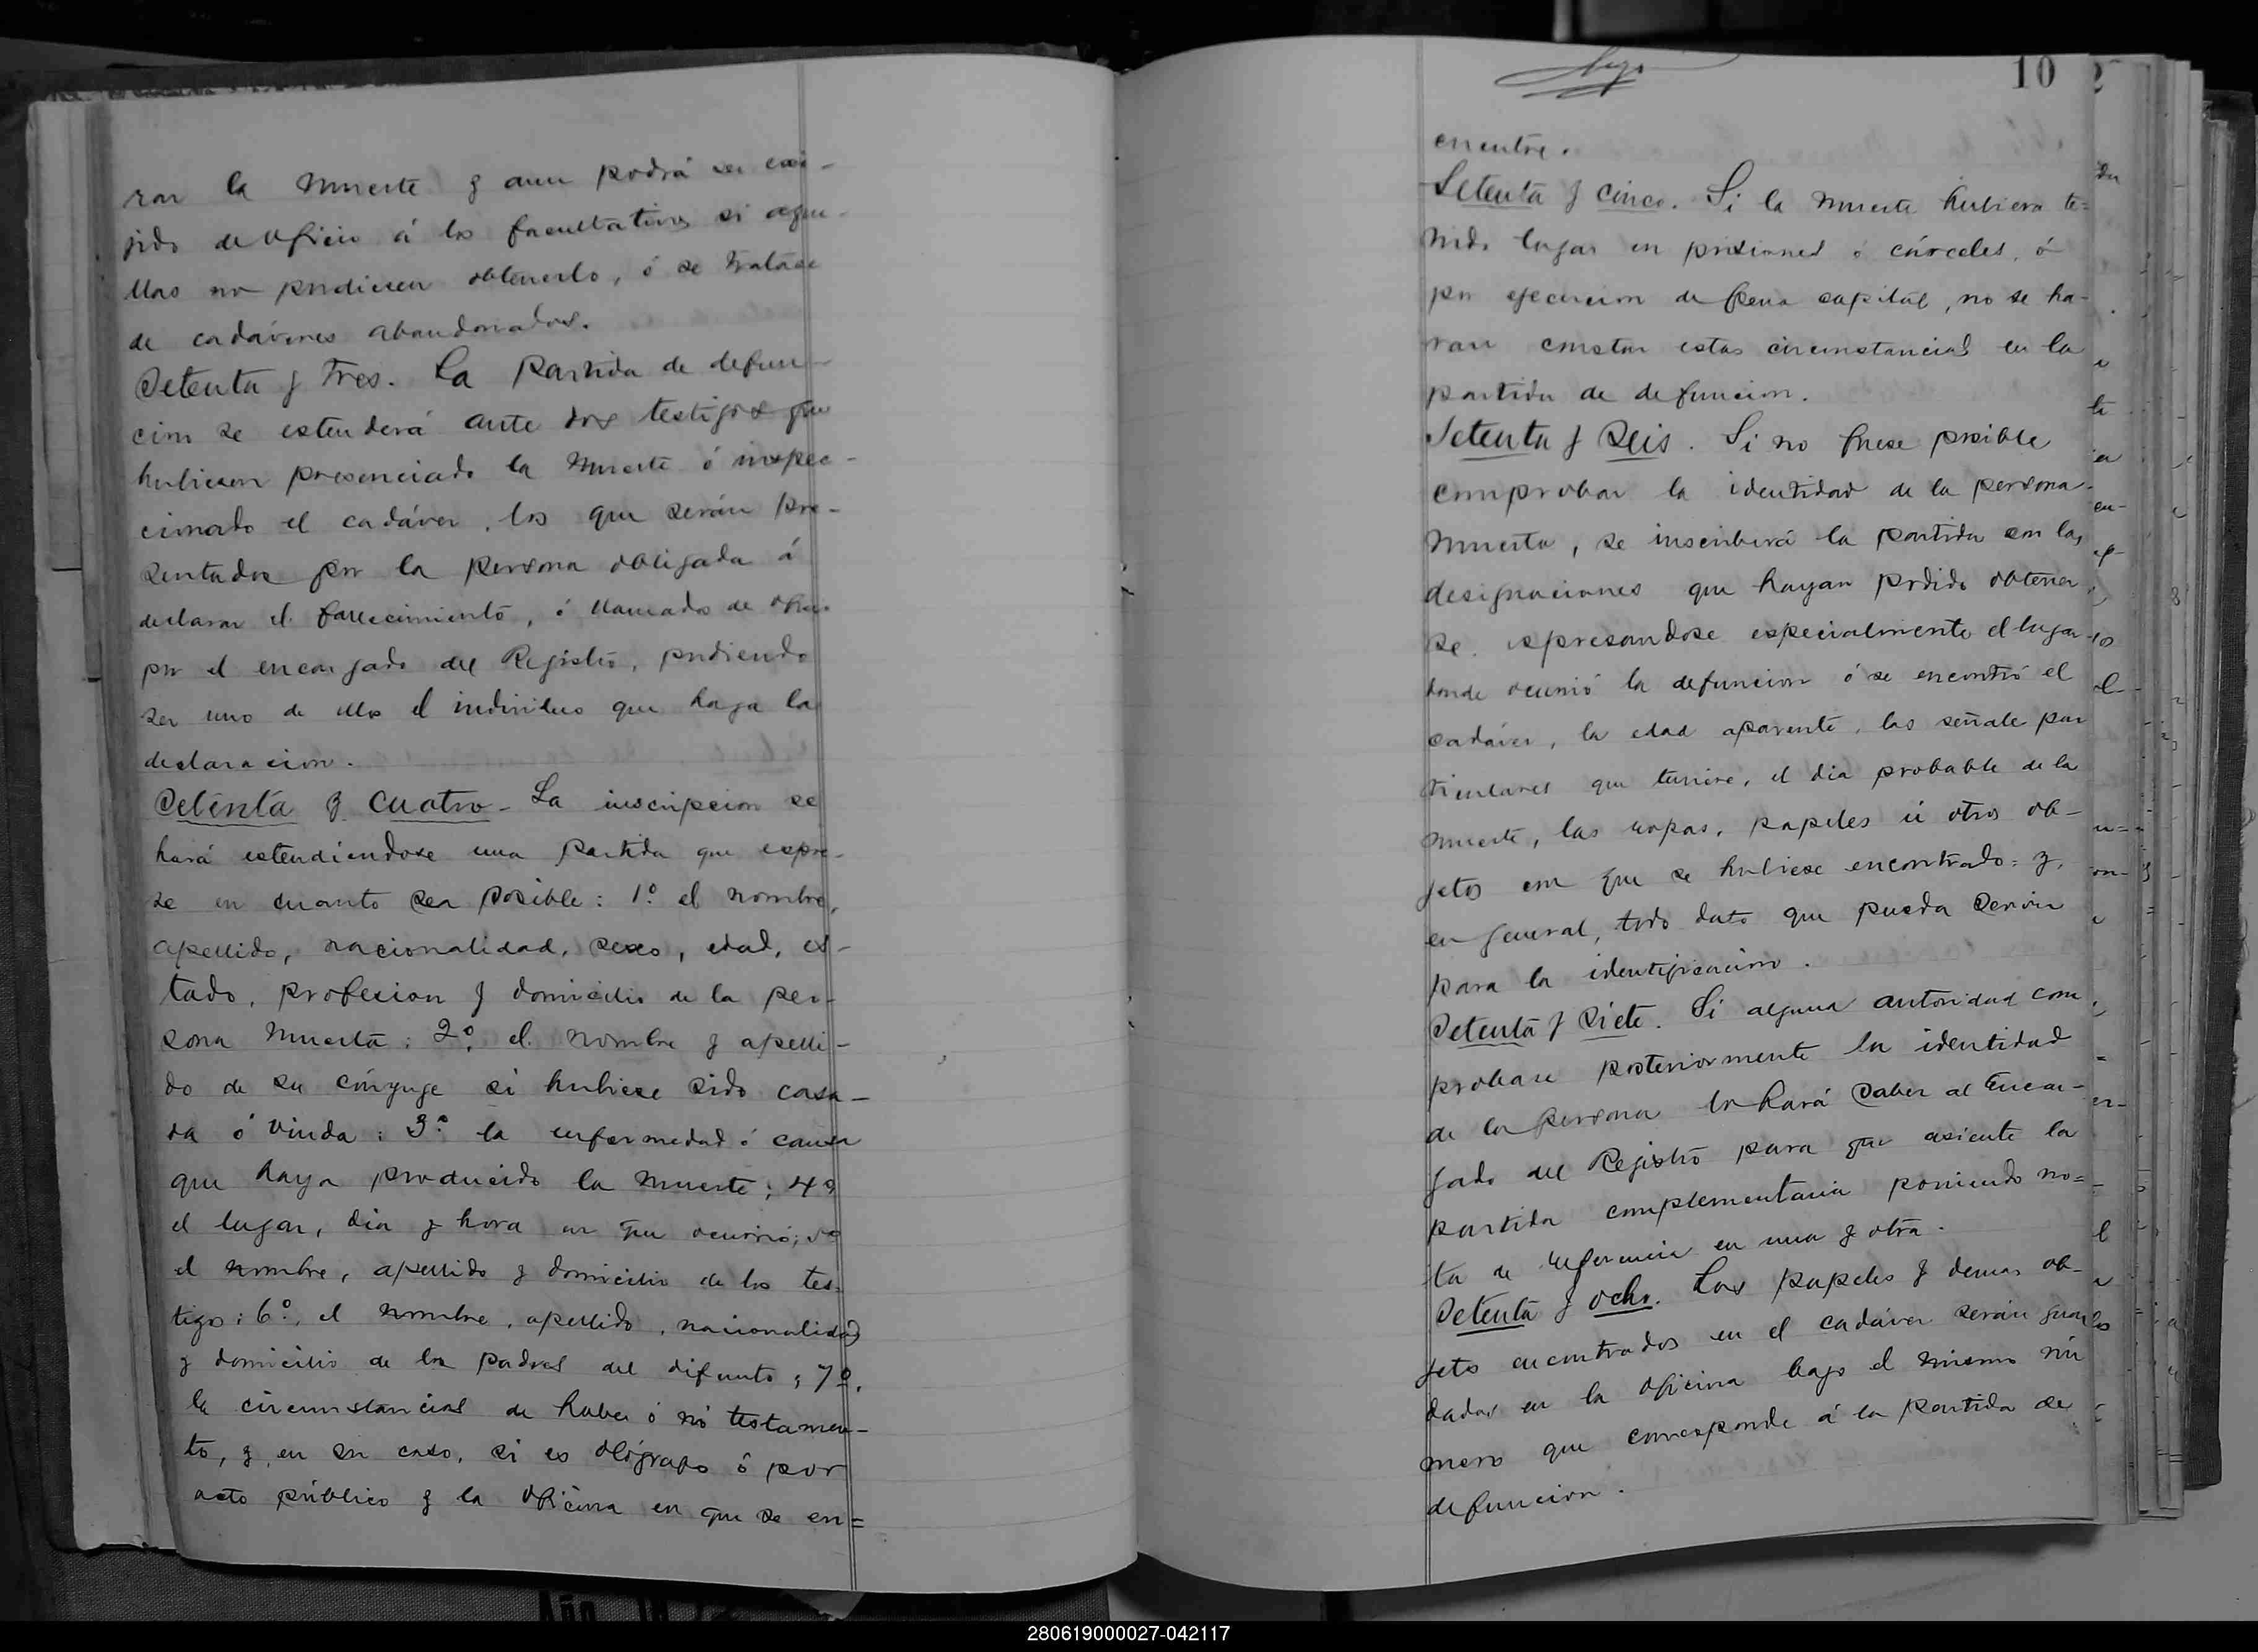 rar la muerte y aun podrá ser exi-
jido de oficio á los facultativos si aque-
llas no pudiesen obtenerlo, ó se tratáse
de cadáveres abandonados.
Setenta y tres. La partida de defun-
cion se estenderá ante dos testigos que
hubiesen presenciado la muerte ó inspec-
cionado el cadáver, los que serán pre-
sentados por la persona obligada á
declarar el fallecimiento, ó llamados de oficio
por el encargado del Registro, pudiendo
ser uno de ellos el individuo que haga la
declaracion.
Setenta y cuatro - La inscripcion se
hará estendiendose una partida que espre-
se en cuanto sea posible: 1º el nombre,
apellido, nacionalidad, sexo, edad, es-
tado, profesion y domicilio de la per-
sona muerta: 2º, el nombre y apelli-
do de su cónyuge si hubiese sido casa-
da ó viuda: 3º la enfermedad ó causa
que haya producido la muerte; 4º
el lugar, dia y hora en que ocurrió; 5º
el nombre, apellido y domicilio de los tes-
tigos: 6º, el nombre, apellido, nacionalidad
y domicilio de los padres del difunto; 7º,
la circunstancias de haber ó nó testamen-
to, y, en su caso, si es ológrafo ó por
acto público y la oficina en que se en=
10
cuentre.
Setenta y cinco. Si la muerte hubiera te=
nido lugar en prisiones ó cárceles, ó
por ejecucion de pena capital, no se ha-
ran constar estas circunstancias en la
partida de defuncion.
Setenta y seis. Si no fuese posible
comprobar la identidad de la persona
muerta, se inscribirá la partida con las
designaciones que hayan podido obtener
se. espresandose especialmente el lugar
donde ocurrió la defuncion ó se encontró el
cadáver, la edad aparente, las señale par
ticulares que tuviere, el dia probable de la
muerte, las ropas, papeles ú otros ob-
jetos con que se hubiese encontrado: y,
en general, todo dato que pueda servir
para la identificacion.
Setenta y siete. Si alguna autoridad com
probare posteriormente la identidad
de la persona lo hará saber al Encar-
gado del Registro para que asiente la
partida complementaria poniendo no=
ta de referencia en una y otra.
Setenta y ocho. Los papeles y demas ob-
jetos encontrados en el cadáver serán guar
dados en la oficina bajo el mismo nú
mero que corresponde á la partida de
defuncion.
280619000027-042117